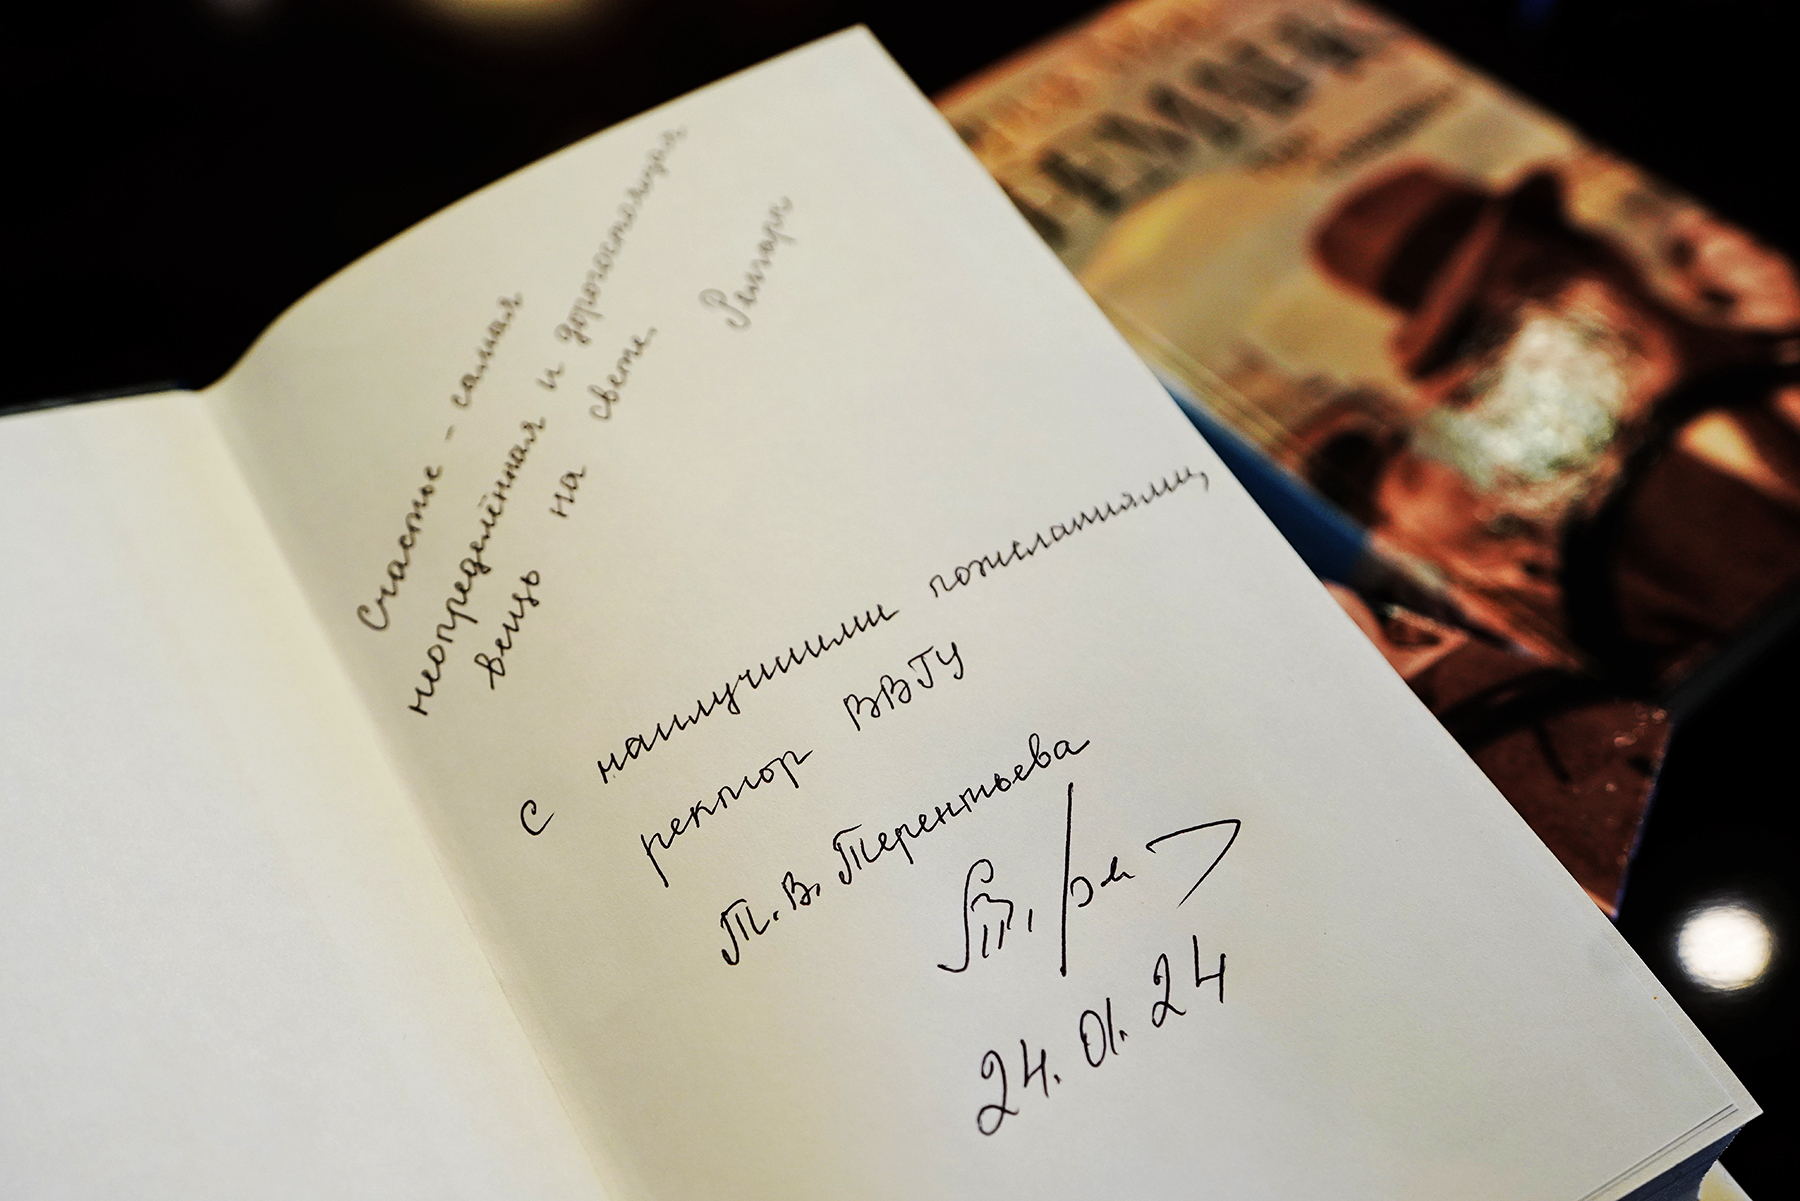 Счастье - самая
неопределённая и дорогостоящая
вещь на свете.
Ремарк
С наилучшими пожеланиями,
ректор ВВГУ
Т. В. Терентьева
24.01.24